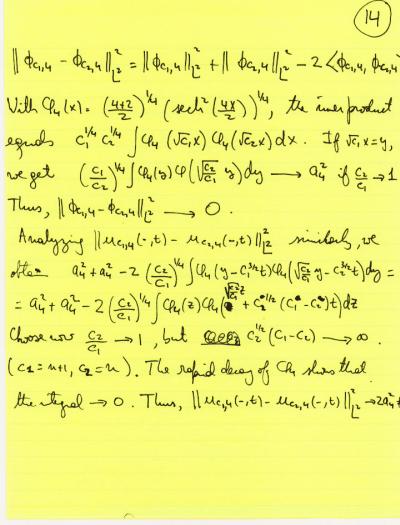 14
‖ϕ_{c₁,4} - ϕ_{c₂,4}‖²_{L²} = ‖ϕ_{c₁,4}‖²_{L²} + ‖ϕ_{c₂,4}‖²_{L²} - 2<ϕ_{c₁,4}, ϕ_{c₂,4}
With φ₄(x) = ((4+2)/2)^{1/4} (sech²(4x/2))^{1/4}, the inner product
equals c₁^{1/4} c₂^{1/4} ∫φ₄(√c₁x) φ₄(√c₂x)dx. If √c₁x=y,
we get (c₂/c₁)^{1/4} ∫φ₄(y)φ(√(c₂/c₁) y)dy → a₄² if c₂/c₁ → 1
Thus, ‖ϕ_{c₁,4} - ϕ_{c₂,4}‖²_{L²} → 0.
Analyzing ‖u_{c₁,4}(-,t) - u_{c₂,4}(-,t)‖²_{L²} similarly, we
obtain a₄² + a₄² - 2(c₂/c₁)^{1/4} ∫φ₄(y - c₁^{3/2}t)φ₄(√(c₂/c₁) y - c₂^{3/2}t)dy =
= a₄² + a₄² - 2(c₂/c₁)^{1/4} ∫φ₄(z)φ₄(√(c₂/c₁)z + c₂^{1/2}(c₁-c₂)t)dz
Choose now c₂/c₁ → 1, but c₂^{1/2}(c₁-c₂) → ∞.
(c₁=n+1, c₂=n). The rapid decay of φ₄ shows that
the integral → 0. Thus, ‖u_{c₁,4}(-,t) - u_{c₂,4}(-,t)‖²_{L²} → 2a₄²